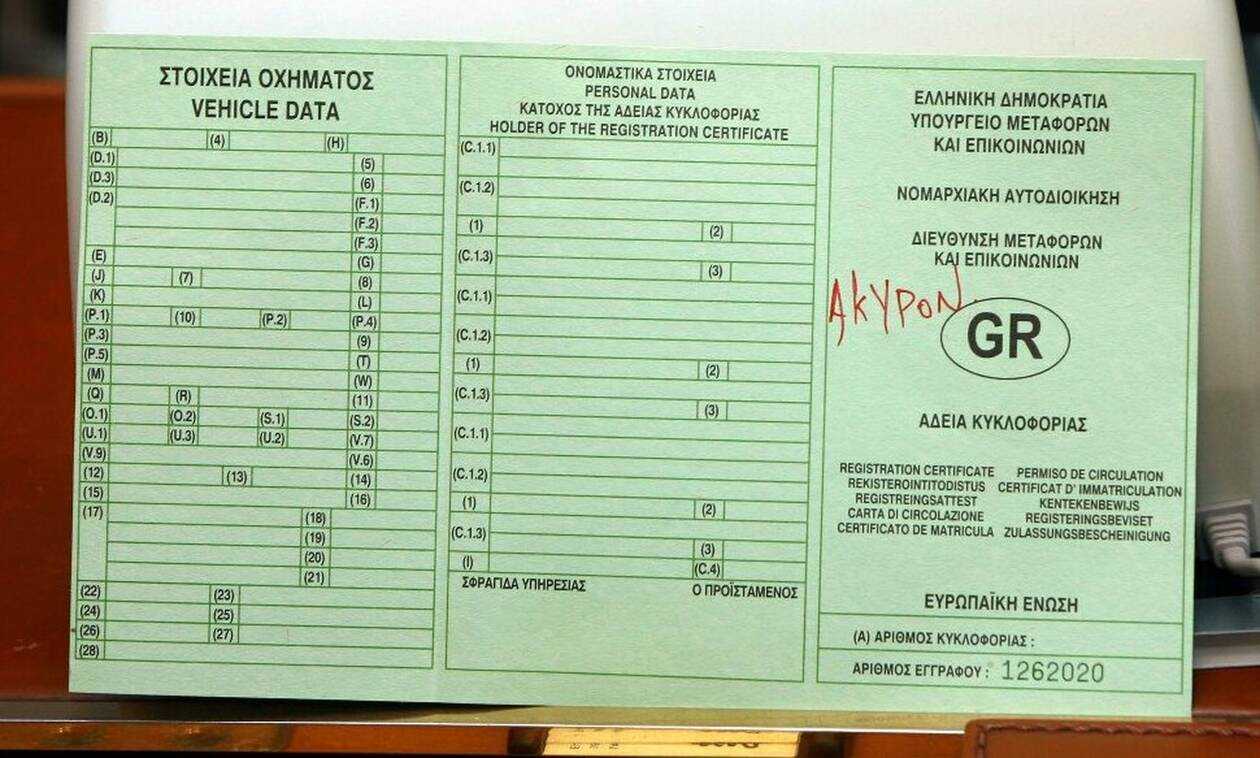 ΣΤΟΙΧΕΙΑ ΟΧΗΜΑΤΟΣ
VEHICLE DATA
(B) (4) (H)
(D.1) (5)
(D.3) (6)
(D.2) (F.1)
(F.2)
(F.3)
(E) (G)
(J) (7) (8)
(K) (L)
(P.1) (10) (P.2) (P.4)
(P.3) (9)
(P.5) (T)
(M) (W)
(Q) (R) (11)
(O.1) (O.2) (S.1) (S.2)
(U.1) (U.3) (U.2) (V.7)
(V.9) (V.6)
(12) (13) (14)
(15) (16)
(17) (18)
(19)
(20)
(21)
(22) (23)
(24) (25)
(26) (27)
(28)
ΟΝΟΜΑΣΤΙΚΑ ΣΤΟΙΧΕΙΑ
PERSONAL DATA
ΚΑΤΟΧΟΣ ΤΗΣ ΑΔΕΙΑΣ ΚΥΚΛΟΦΟΡΙΑΣ
HOLDER OF THE REGISTRATION CERTIFICATE
(C.1.1)
(C.1.2)
(1) (2)
(C.1.3)
(3)
(C.1.1)
(C.1.2)
(1) (2)
(C.1.3)
(3)
(C.1.1)
(C.1.2)
(1) (2)
(C.1.3)
(3)
(I) (C.4)
ΣΦΡΑΓΙΔΑ ΥΠΗΡΕΣΙΑΣ Ο ΠΡΟΪΣΤΑΜΕΝΟΣ
ΕΛΛΗΝΙΚΗ ΔΗΜΟΚΡΑΤΙΑ
ΥΠΟΥΡΓΕΙΟ ΜΕΤΑΦΟΡΩΝ
ΚΑΙ ΕΠΙΚΟΙΝΩΝΙΩΝ
ΝΟΜΑΡΧΙΑΚΗ ΑΥΤΟΔΙΟΙΚΗΣΗ
ΔΙΕΥΘΥΝΣΗ ΜΕΤΑΦΟΡΩΝ
ΚΑΙ ΕΠΙΚΟΙΝΩΝΙΩΝ
ΑΚΥΡΟΝ
GR
ΑΔΕΙΑ ΚΥΚΛΟΦΟΡΙΑΣ
REGISTRATION CERTIFICATE PERMISO DE CIRCULATION
REKISTEROINTITODISTUS CERTIFICAT D' IMMATRICULATION
REGISTREINGSATTEST KENTEKENBEWIJS
CARTA DI CIRCOLAZIONE REGISTERINGSBEVISET
CERTIFICATO DE MATRICULA ZULASSUNGSBESCHEINIGUNG
ΕΥΡΩΠΑΪΚΗ ΕΝΩΣΗ
(Α) ΑΡΙΘΜΟΣ ΚΥΚΛΟΦΟΡΙΑΣ :
ΑΡΙΘΜΟΣ ΕΓΓΡΑΦΟΥ : 1262020